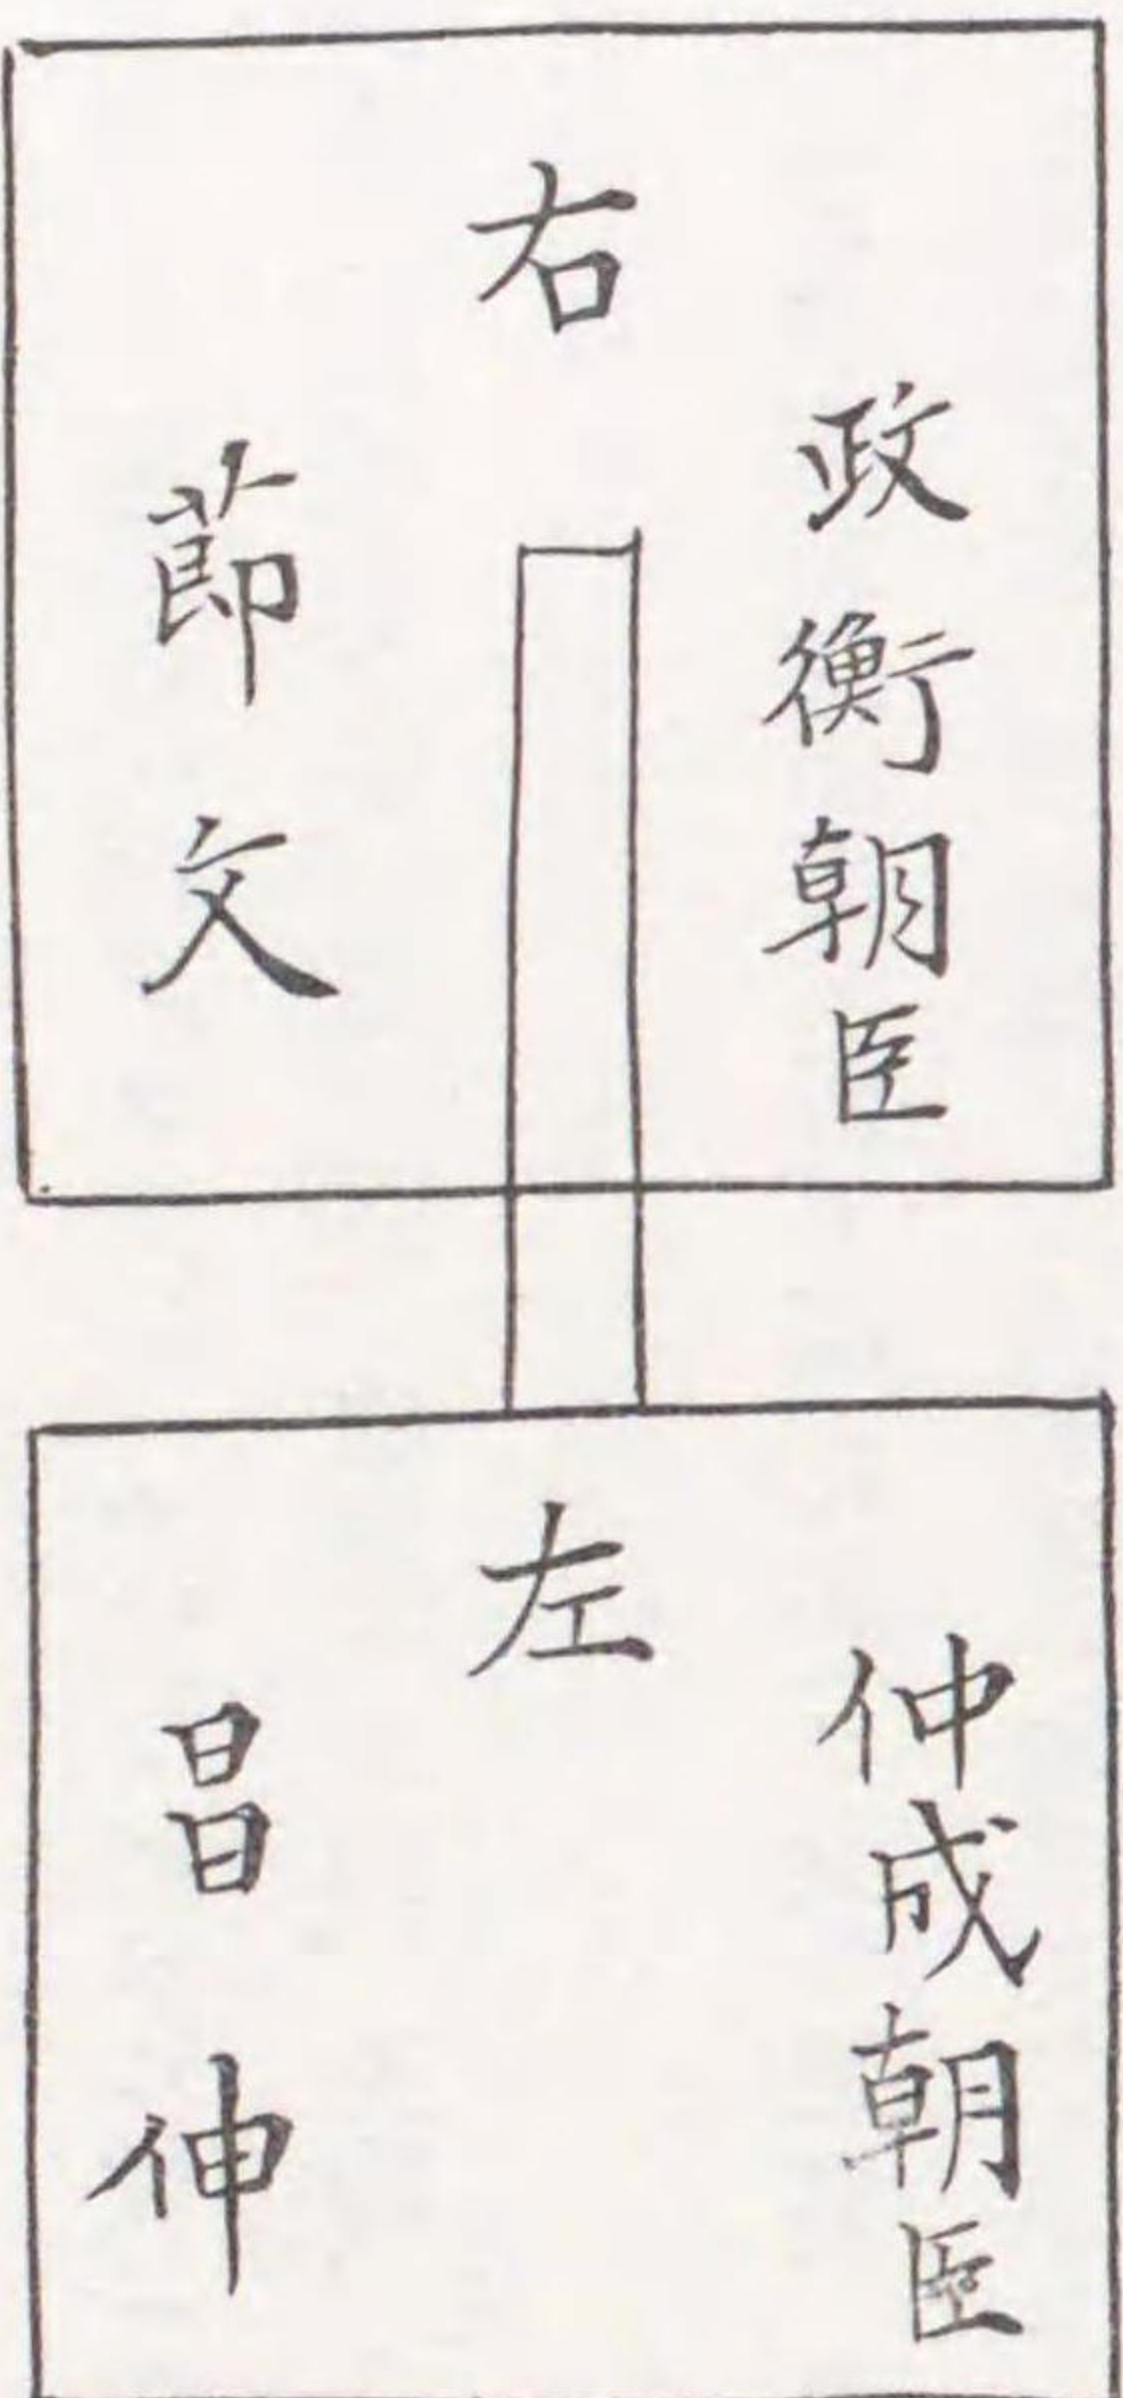 右
政衡朝臣
莭文
左
仲成朝臣
昌伸